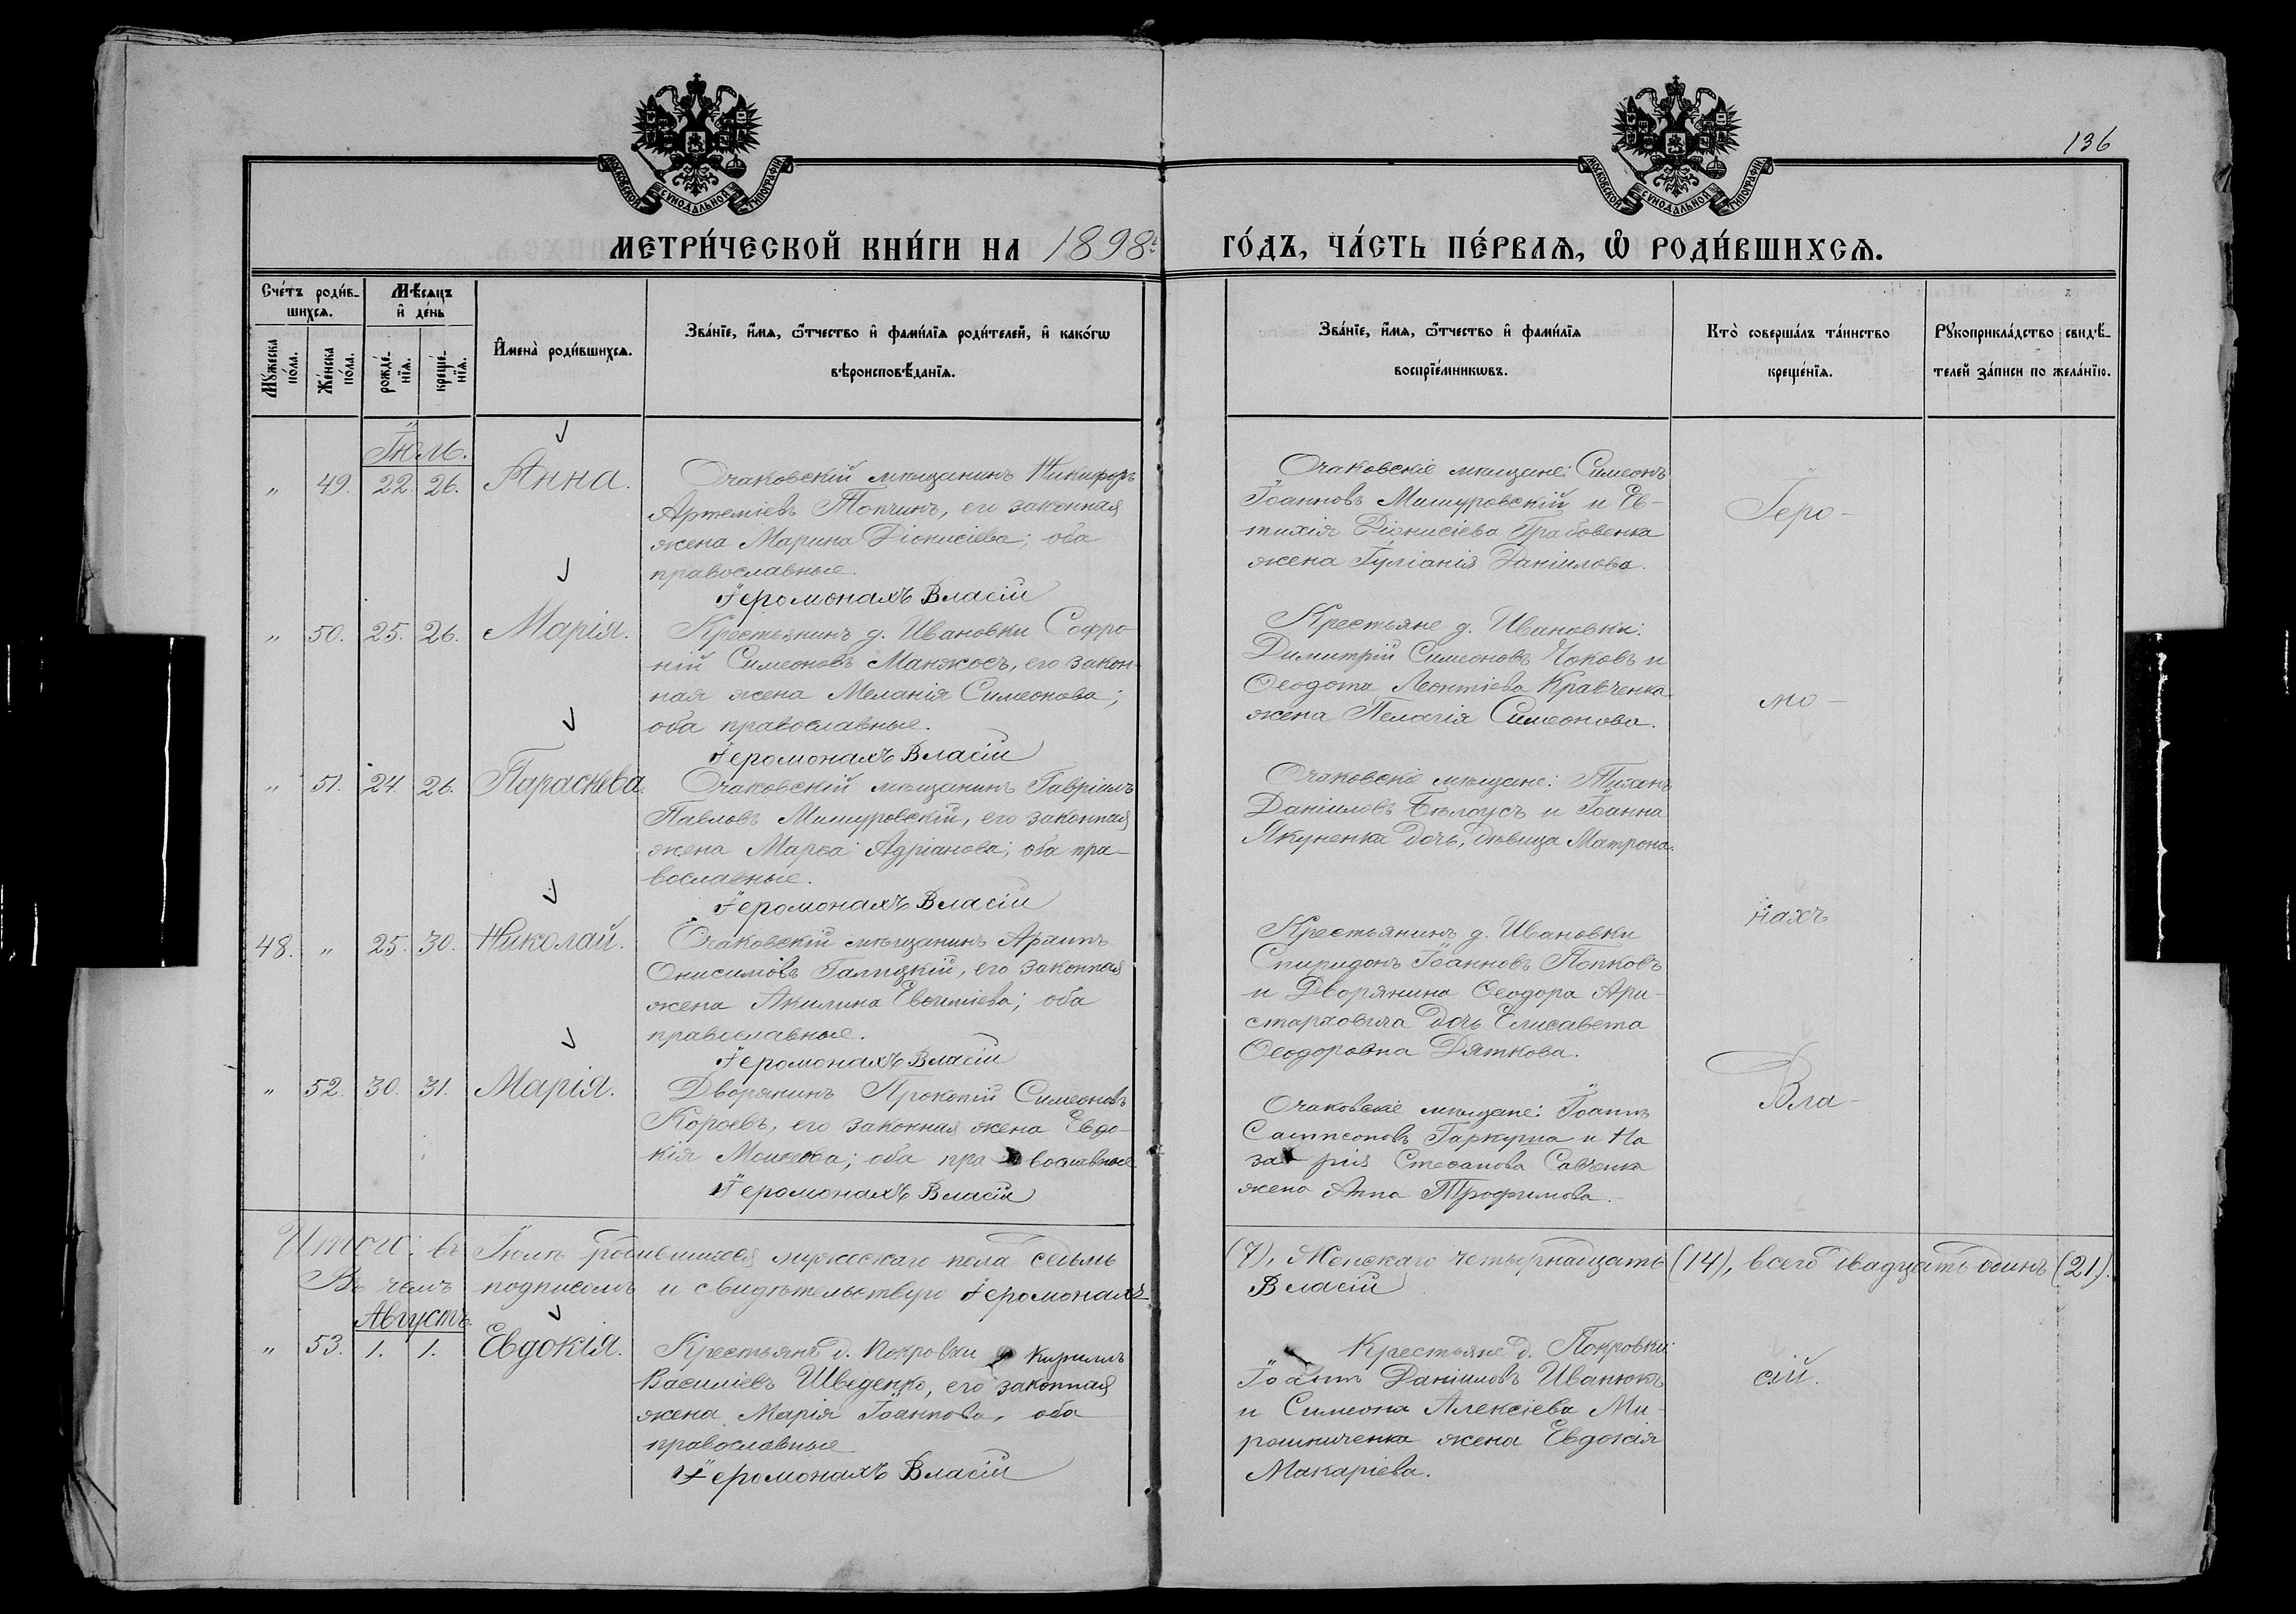 136
МОСКОВСКОЙ СУНОДАЛЬНОЙ ТИПОГРАФІИ
МОСКОВСКОЙ СУНОДАЛЬНОЙ ТИПОГРАФІИ
МЕТРИ́ЧЕСКОЙ КНИ́ГИ НА 1898 ГО́ДЪ, ЧА́СТЬ ПЕ́РВАѦ, Ѡ РОДИ́ВШИХСѦ.
Сче́тъ роди́в-
шихсѧ.
Мꙋ́жеска по́ла.
Же́нска по́ла.
Мѣ́сѧцъ и де́нь
рожде́нїѧ.
креще́нїѧ.
Имена̀ роди́вшихсѧ.
Зва́нїе, и́мѧ, ѻ́тчество и фами́лїѧ роди́телей, и како́гѡ
вѣроисповѣ́данїѧ.
Зва́нїе, и́мѧ, ѻ́тчество и фами́лїѧ
воспрїе́мникѡвъ.
Кто̀ соверша́лъ та́инство
креще́нїѧ.
Рꙋкоприкла́дство свидѣ́-
телей за́писи по жела́нїю.
Іюль.
„ 49. 22. 26. Анна.
Очаковскій мѣщанинъ Никифоръ
Артеміевъ Топчинъ, его законная
жена Марина Діонисіева; оба
православные.
Іеромонахъ Власій
Очаковскіе мѣщане: Симеонъ
Іоанновъ Мишуровскій и Ев-
тихія Діонисіева Грабовенка
жена Іуліанія Даніилова.
Іеро-
„ 50. 25. 26. Марія.
Крестьянинъ д. Ивановки Софро-
ній Симеоновъ Манжосъ, его закон-
ная жена Меланія Симеонова;
оба православные.
Іеромонахъ Власій
Крестьяне д. Ивановки:
Димитрій Симеоновъ Чоковъ и
Ѳеодота Леонтіева Кравченка
жена Пелагія Симеонова.
мо-
„ 51. 24. 26. Параскева.
Очаковскій мѣщанинъ Гавріилъ
Павловъ Мишуровскій, его законная
жена Марѳа Адріанова; оба пра-
вославные.
Іеромонахъ Власій
Очаковскіе мѣщане: Тихонъ
Даніиловъ Бѣлоусъ и Іоанна
Якуненка дочь, дѣвица Матрона.
нахъ
48. „ 25. 30. Николай.
Очаковскій мѣщанинъ
Онисимовъ Галицкій, его законная
жена Акилина; оба
православные.
Іеромонахъ Власій
Крестьянинъ д. Ивановки
Спиридонъ Іоанновъ Попковъ
и Дворянина Ѳеодора Ари-
старховича дочь Елисавета
Ѳеодоровна Дяткова.
„ 52. 30. 31. Марія.
Дворянинъ Прокопій Симеоновъ
Короевъ, его законная жена Евдо-
кія Моисеева; оба православные
Іеромонахъ Власій
Очаковскіе мѣщане: Іоаннъ
Сампсоновъ Гаркуша и На
за рія Стефанова Савченка
жена Анна Трофимова.
Вла-
Итого: въ Іюлѣ родившихся мужескаго пола седьмь (7), Женскаго четырнадцать (14), всего двадцать одинъ (21).
Въ чемъ подписомъ и свидѣтельствую Іеромонахъ Власій
Августъ.
„ 53. 1. 1. Евдокія.
Крестьянъ д. Покровки Кириллъ
Василіевъ Шведенко, его законная
жена Марія Іоаннова, оба
православные
Іеромонахъ Власій
Крестьяне д. Покровки:
Іоаннъ Даніиловъ Иванюкъ
и Симеона Алексіева Ми-
рошниченка жена Евдокія
Макаріева.
сій.